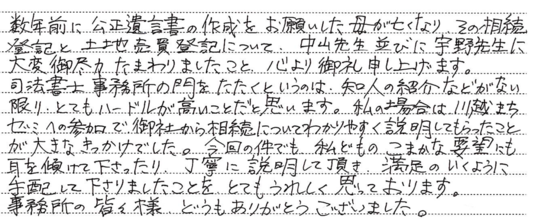 数年前に公正遺言書の作成をお願いした母が亡くなり、その相続
登記と土地売買登記について、中山先生並びに宇野先生に
大変御尽力たまわりましたこと、心より御礼申し上げます。
司法書士事務所の門をたたくというのは、知人の紹介などがない
限り、とてもハードルが高いことだと思います。私の場合は川越まち
ゼミへの参加で御社から相続についてわかりやすく説明してもらったこと
が大きなきっかけでした。今回の件でも、私どものこまかな要望にも
耳を傾けて下さったり、丁寧に説明して頂き、満足のいくように
手配して下さりましたことを、とてもうれしく思っております。
事務所の皆々様 どうもありがとうございました。